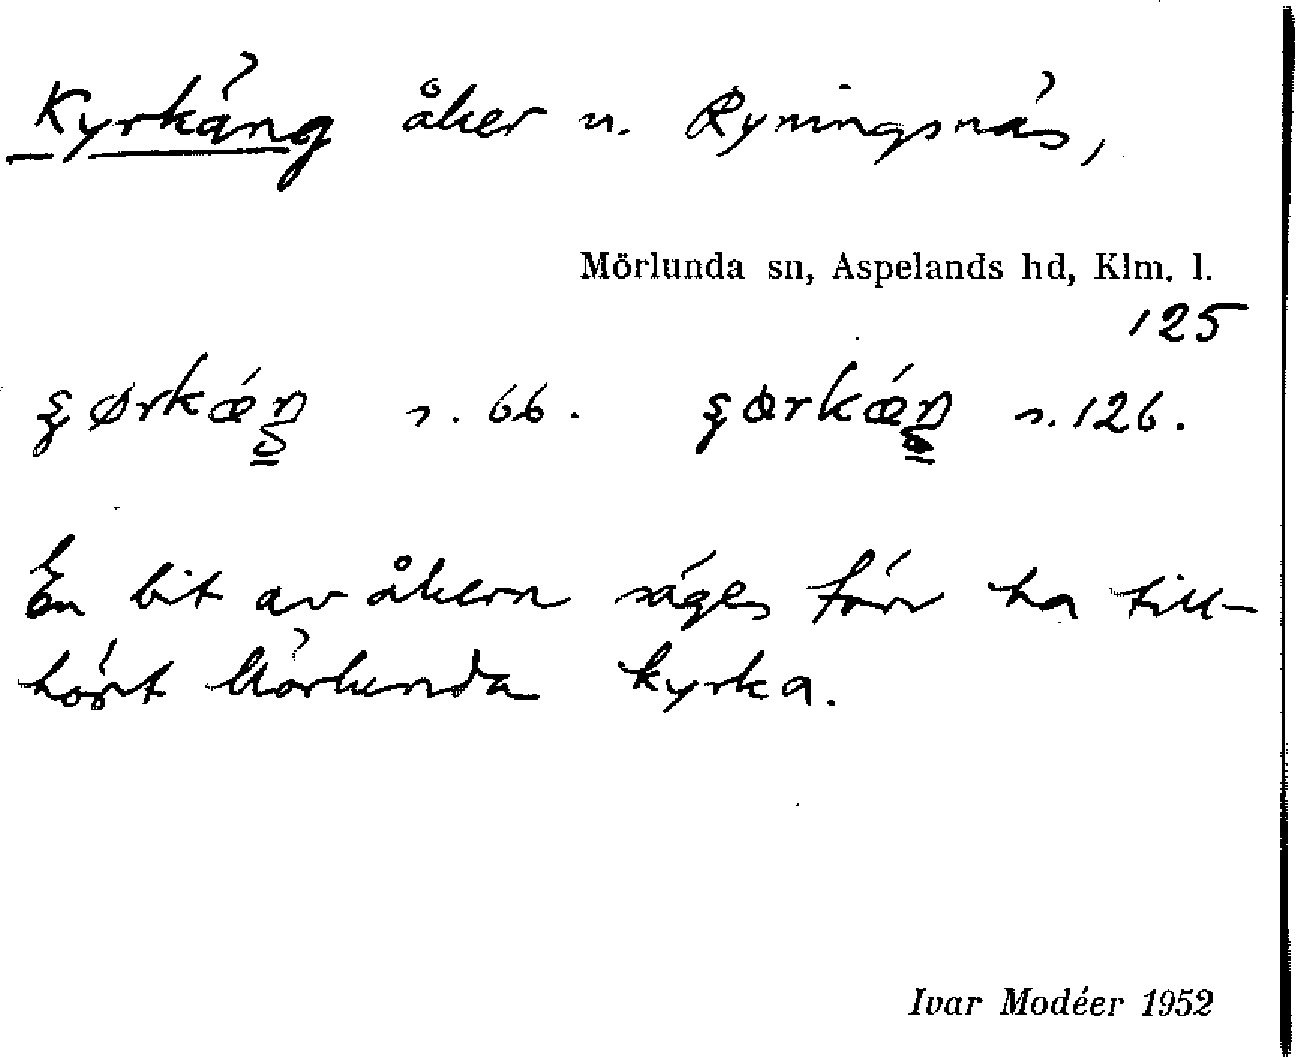 Kyrkäng åker u. Ryningsnäs,
Mörlunda sn, Aspelands hd, Klm. l.
125
s. 66. s. 126.
En bit av åkern säges förr ha till-
hört Mörlunda kyrka.
Ivar Modéer 1952